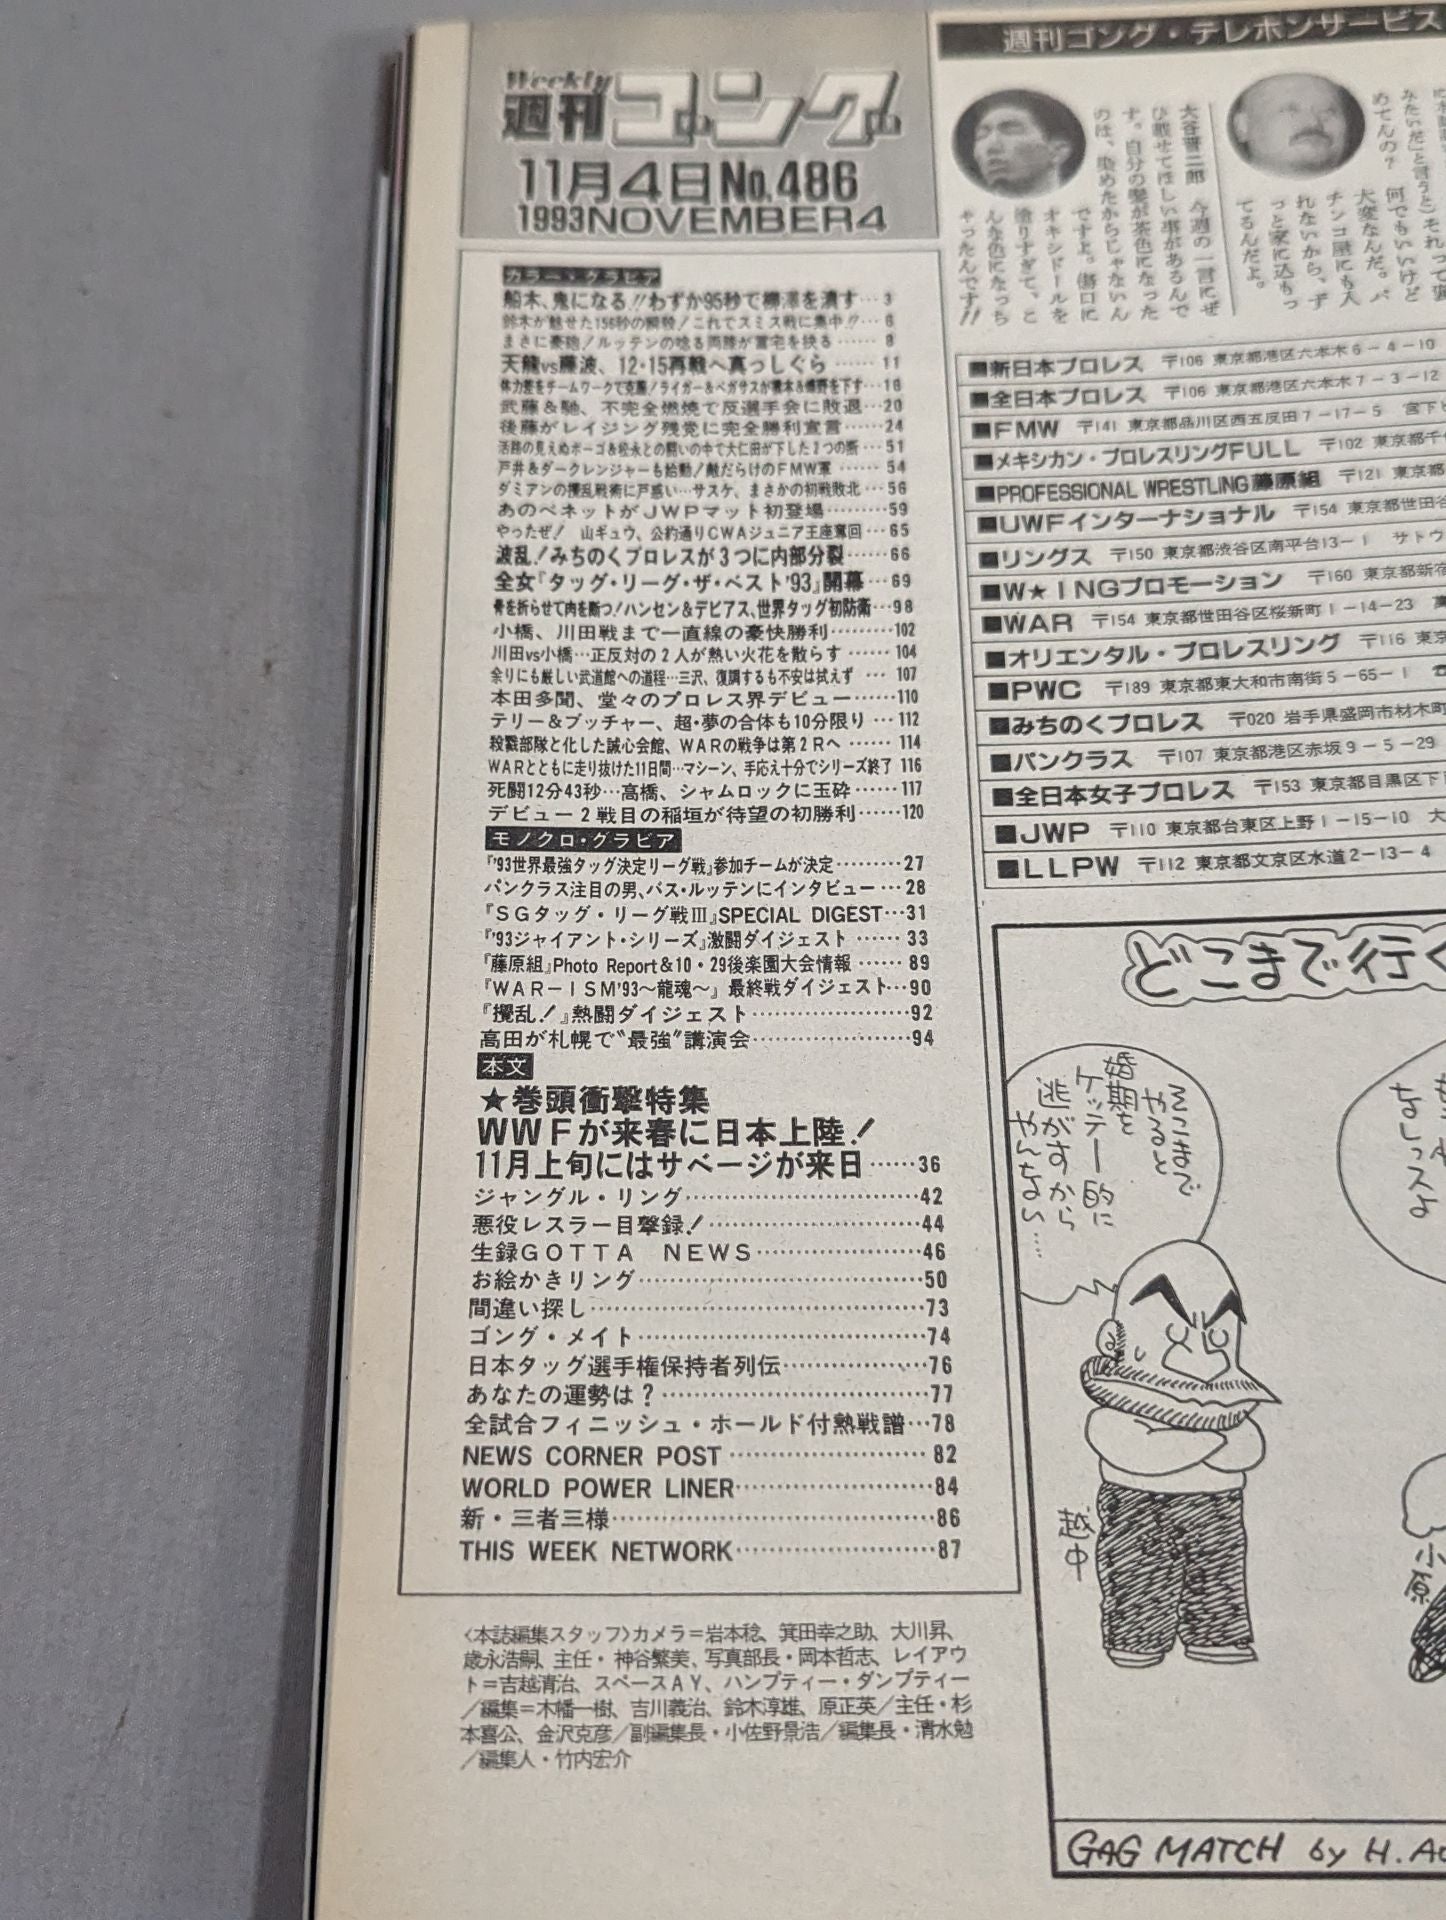 Weekly
週刊ゴング
11月4日No.486
1993NOVEMBER4
カラー・グラビア
船木、鬼になる!!わずか95秒で柳澤を潰す…3
鈴木が魅せた156秒の瞬殺!これでスミス戦に集中!!…6
まさに豪砲!ルッテンの唸る両膝が冨宅を抉る……8
天龍vs藤波、12・15再戦へ真っしぐら……11
体力差をチームワークで克服!ライガー&ペガサスが橋本&蝶野を下す…16
武藤&馳、不完全燃焼で反選手会に敗退…20
後藤がレイジング残党に完全勝利宣言……24
活路の見えぬポーゴ&松永との闘いの中で大仁田が下した2つの断…51
戸井&ダークレンジャーも始動!敵だらけのFMW軍……54
ダミアンの攪乱戦術に戸惑い…サスケ、まさかの初戦敗北…56
あのベネットがJWPマット初登場………59
やったぜ! 山ギュウ、公約通りCWAジュニア王座奪回…65
波乱!みちのくプロレスが3つに内部分裂……66
全女『タッグ・リーグ・ザ・ベスト'93』開幕…69
骨を折らせて肉を断つ!ハンセン&デビアス、世界タッグ初防衛…98
小橋、川田戦まで一直線の豪快勝利………102
川田vs小橋…正反対の2人が熱い火花を散らす……104
余りにも厳しい武道館への道程…三沢、復調するも不安は拭えず…107
本田多聞、堂々のプロレス界デビュー……110
テリー&ブッチャー、超・夢の合体も10分限り…112
殺戮部隊と化した誠心会館、WARの戦争は第2Rへ……114
WARとともに走り抜けた11日間…マシーン、手応え十分でシリーズ終了 116
死闘12分43秒…高橋、シャムロックに玉砕……117
デビュー2戦目の稲垣が待望の初勝利……120
モノクロ・グラビア
『'93世界最強タッグ決定リーグ戦』参加チームが決定………27
パンクラス注目の男、バス・ルッテンにインタビュー…28
『SGタッグ・リーグ戦III』SPECIAL DIGEST…31
『'93ジャイアント・シリーズ』激闘ダイジェスト……33
『藤原組』Photo Report&10・29後楽園大会情報……89
『WAR-ISM'93〜龍魂〜』最終戦ダイジェスト…90
『攪乱!』熱闘ダイジェスト…………………92
高田が札幌で"最強"講演会…………………94
本文
★巻頭衝撃特集
WWFが来春に日本上陸!
11月上旬にはサベージが来日……36
ジャングル・リング…………………………42
悪役レスラー目撃録!………………………44
生録GOTTA NEWS…………………46
お絵かきリング………………………………50
間違い探し……………………………………73
ゴング・メイト………………………………74
日本タッグ選手権保持者列伝………………76
あなたの運勢は?……………………………77
全試合フィニッシュ・ホールド付熱戦譜…78
NEWS CORNER POST……………………82
WORLD POWER LINER……………………84
新・三者三様…………………………………86
THIS WEEK NETWORK……………………87
〈本誌編集スタッフ〉カメラ=岩本稔、箕田幸之助、大川昇、
歳永浩嗣、主任・神谷繁美、写真部長・岡本哲志、レイアウ
ト=吉越清治、スペースAY、ハンプティー・ダンプティー
/編集=木幡一樹、吉川義治、鈴木淳雄、原正英/主任・杉
本喜公、金沢克彦/副編集長・小佐野景浩/編集長・清水勉
/編集人・竹内宏介
週刊ゴング・テレホンサービス
大谷晋二郎 今週の一言にぜ
ひ載せてほしい事があるんで
す。自分の髪が茶色になった
のは、染めたからじゃないん
ですよ。傷口に
オキシドールを
塗りすぎて、こ
んな色になっち
ゃったんです!!
みたいだ」と言うと)それって
めてんの? 何でもいいけど
大変なんだ。パ
チンコ屋にも入
れないから、ず
っと家に込もっ
てるんだよ。
■新日本プロレス 〒106 東京都港区六本木6-4-10
■全日本プロレス 〒106 東京都港区六本木7-3-12
■FMW 〒141 東京都品川区西五反田7-17-5 宮下
■メキシカン・プロレスリングFULL 〒102 東京都千
■PROFESSIONAL WRESTLING藤原組 〒121 東京都
■UWFインターナショナル 〒154 東京都世田谷
■リングス 〒150 東京都渋谷区南平台13-1 サトウ
■W★INGプロモーション 〒160 東京都新宿
■WAR 〒154 東京都世田谷区桜新町1-14-23
■オリエンタル・プロレスリング 〒116 東京
■PWC 〒189 東京都東大和市南街5-65-1 ☎
■みちのくプロレス 〒020 岩手県盛岡市材木町
■パンクラス 〒107 東京都港区赤坂9-5-29
■全日本女子プロレス 〒153 東京都目黒区下
■JWP 〒110 東京都台東区上野1-15-10 大
■LLPW 〒112 東京都文京区水道2-13-4
どこまで行く
そこまで
やると
婚期を
ケッテー的に
逃がすから
やんない…
なしっスよ
越中
小原
GAG MATCH by H.A